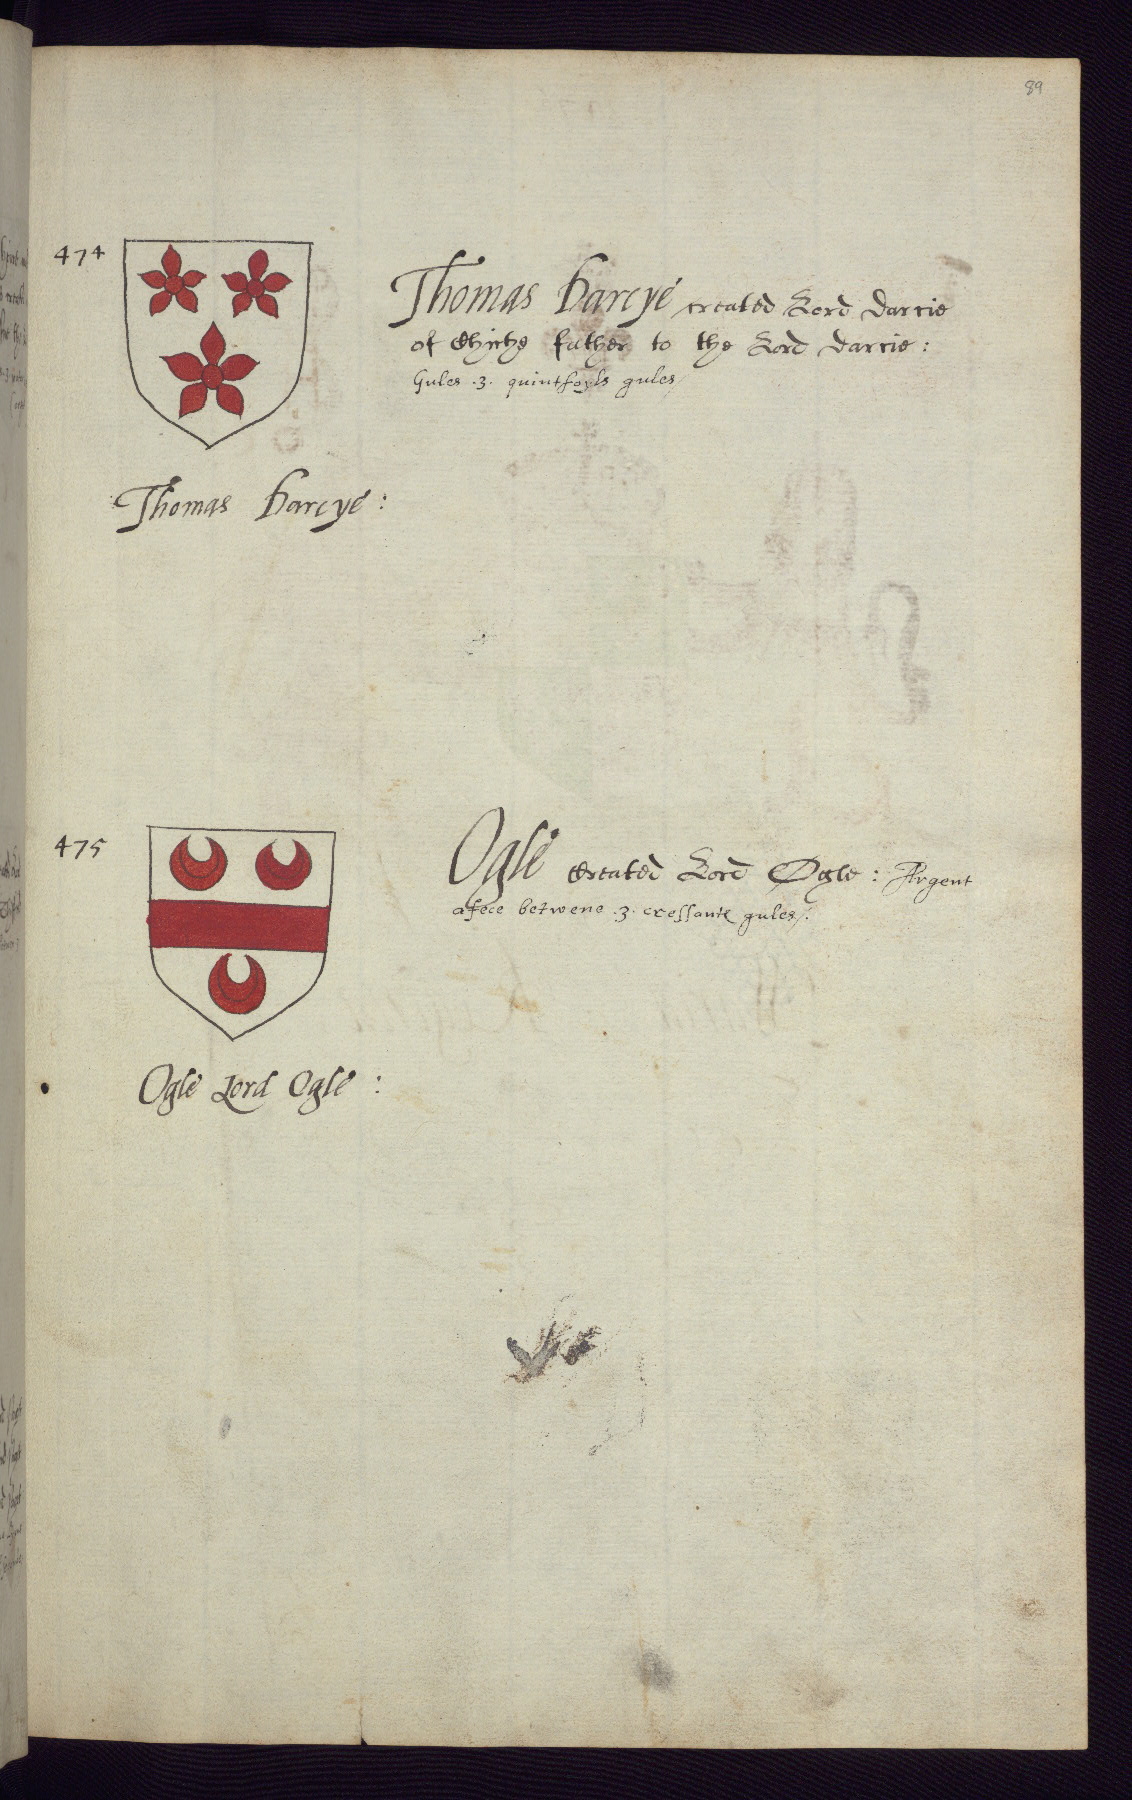 89
474
Thomas Darcye created Lord Darcie
of Chiche father to the Lord Darcie:
Gules .3. quintfoyls gules
Thomas Darcye:
475
Ogle Created Lord Ogle: Argent
a fece betwene .3. cressante gules/.
Ogle Lord Ogle: